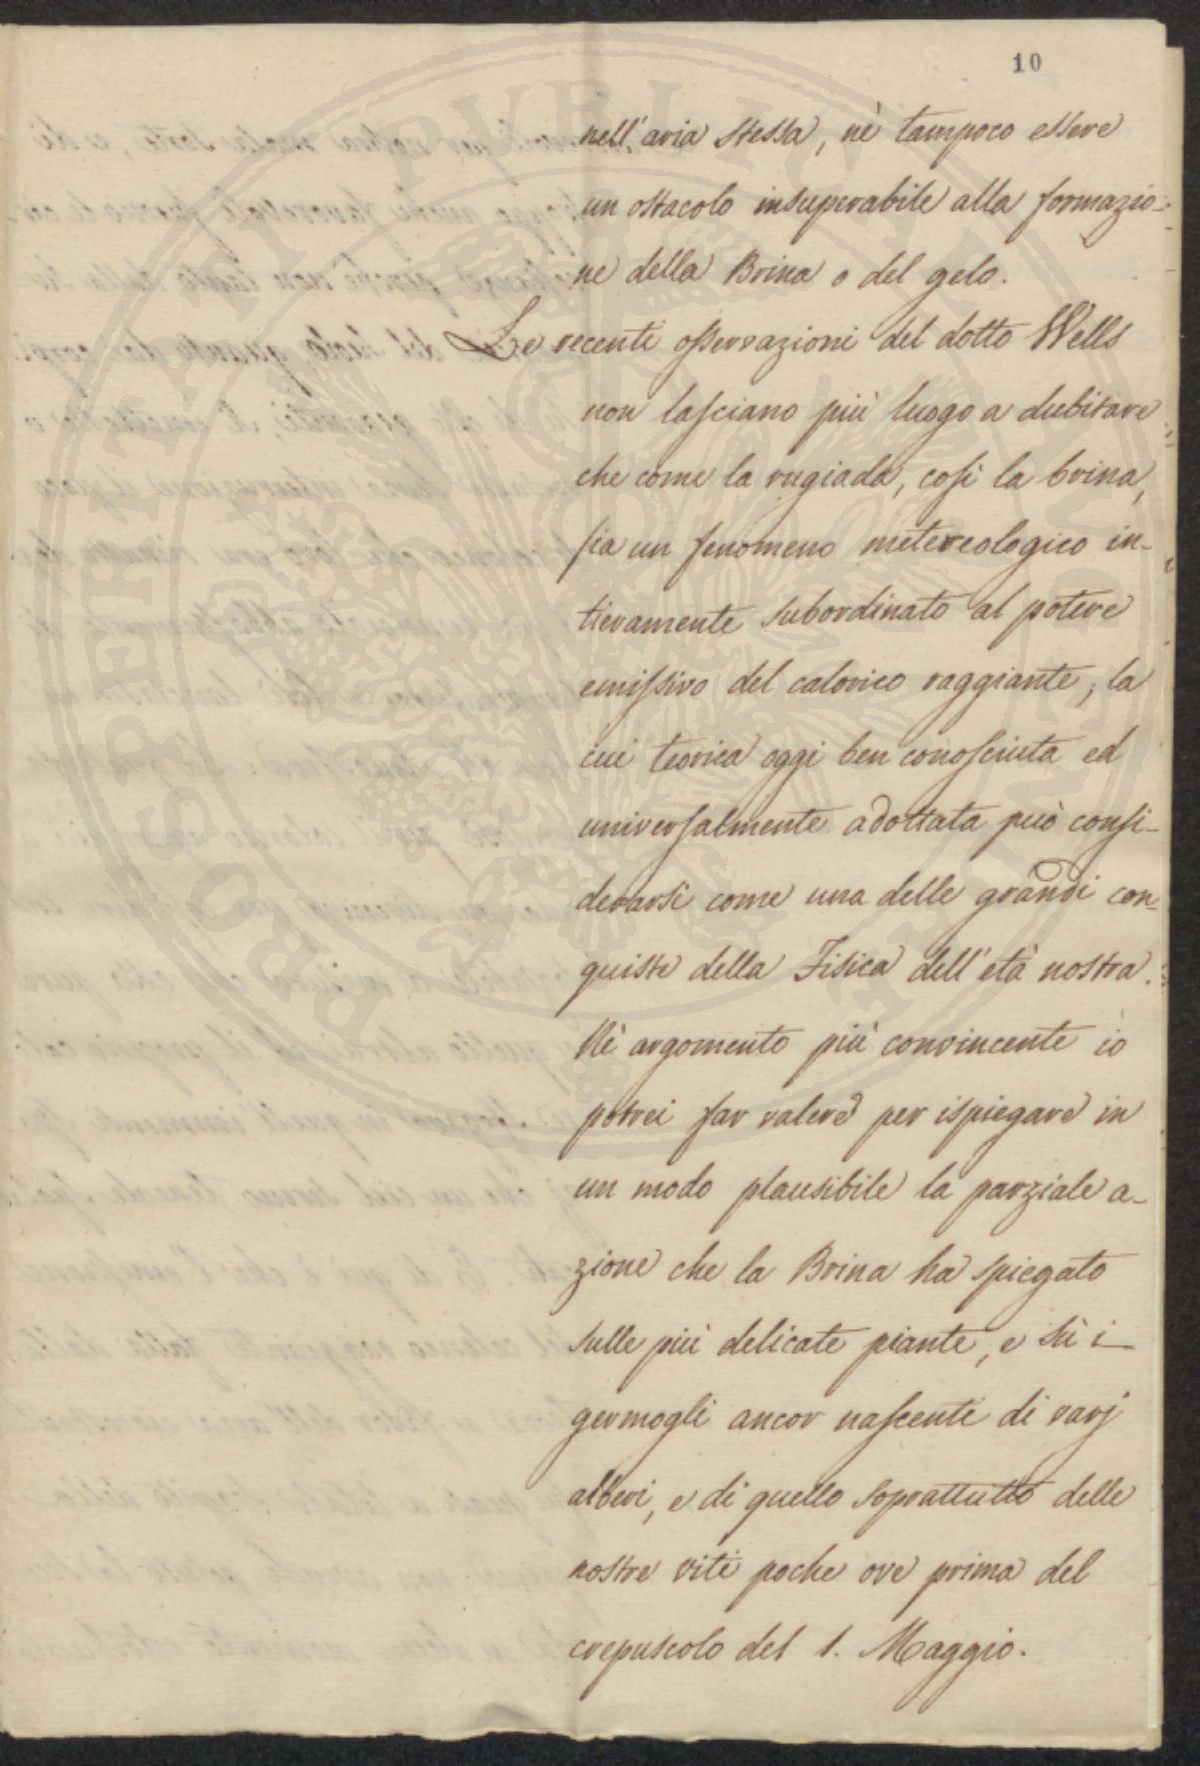 10
nell'aria stessa, nè tampoco essere
un ostacolo insuperabile alla formazio-
ne della Brina o del gelo.
Le recenti osservazioni del dotto Wells
non lasciano più luogo a dubitare
che come la rugiada, così la brina,
sia un fenomeno metereologico in-
tieramente subordinato al potere
emissivo del calorico raggiante, la
cui teorica oggi ben conosciuta ed
universalmente adottata può consi-
derarsi come una delle grandi con-
quiste della Fisica dell'età nostra.
Nè argomento più convincente io
potrei far valere per ispiegare in
un modo plausibile la parziale a-
zione che la Brina ha spiegato
sulle più delicate piante, e sù i
germogli ancor nascenti di varj
alberi, e di quello soprattutto delle
nostre viti poche ore prima del
crepuscolo del 1. Maggio.
PROSPERITATI PUBLICAE